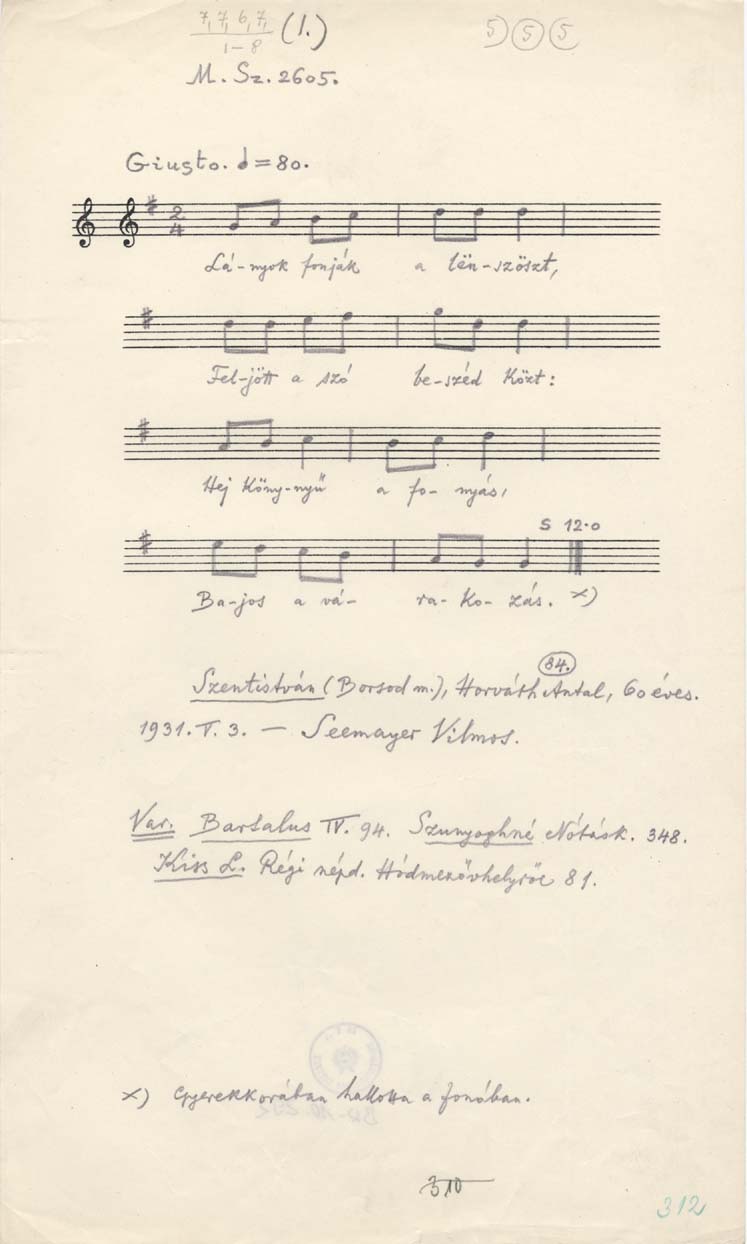 7, 7, 6, 7, (1.) 5) 5 5
1-8
M. Sz. 2605.
Giusto. ♩=80.
2
4
Lá-nyok fonják a lën-szöszt,
Fel-jött a szó be-széd közt:
Hej köny-nyű a fo-nyás,
S 12.0
Ba-jos a vá-ra-ko-zás. x)
84.
Szentistván (Borsod m.), Horváth Antal, 60 éves.
1931. V. 3. — Seemayer Vilmos.
Var. Bartalus IV. 94. Szunyoghné Nótásk. 348.
Kiss L. Régi népd. Hódmezővhelyről 81.
x) Gyerekkorában hallotta a fonóban.
310
312